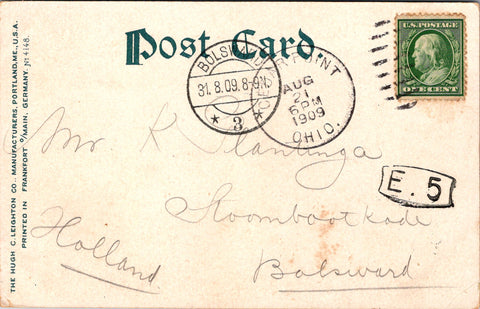 Post Card.
THE HUGH C. LEIGHTON CO., MANUFACTURERS, PORTLAND, ME., U.S.A.
PRINTED IN FRANKFORT O/MAIN, GERMANY. № 4148.
BOLSWARD
31.8.09.8-9N
3
CEDAR POINT
AUG
21
6 PM
1909
OHIO.
U.S. POSTAGE
ONE CENT
E. 5
Mr K Slaninga
Stoombootkade
Holland
Bolsward